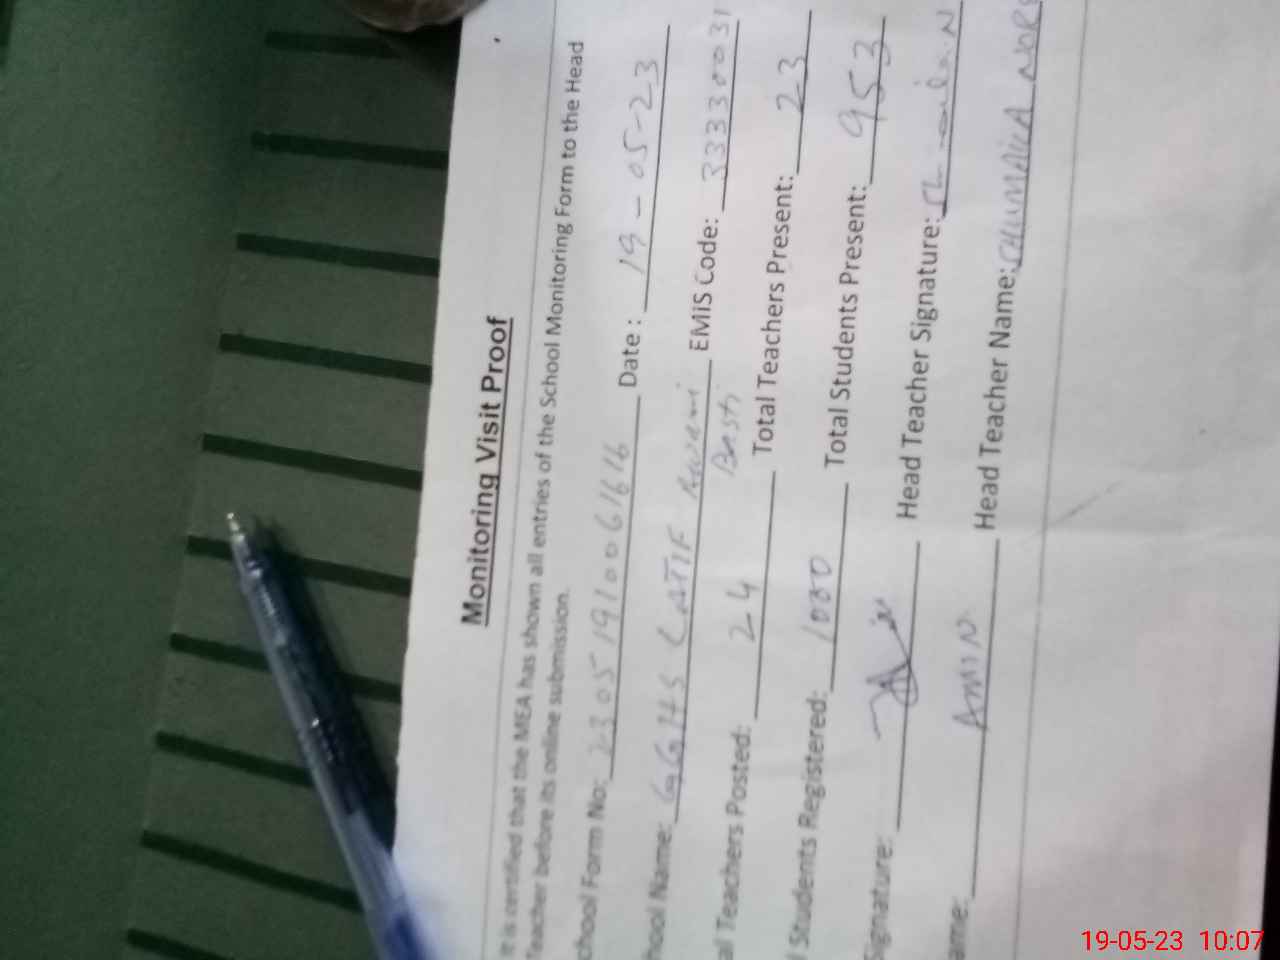 Monitoring Visit Proof
It is certified that the MEA has shown all entries of the School Monitoring Form to the Head
Teacher before its online submission.
chool Form No: 2305191006 1616 Date : 19-05-23
hool Name: GGHS LATIF Basti EMIS Code: 33330031
al Teachers Posted: 24 Total Teachers Present: 23
l Students Registered: Total Students Present: 953
Signature: Head Teacher Signature:
ame: AMIN Head Teacher Name:
19-05-23 10:07